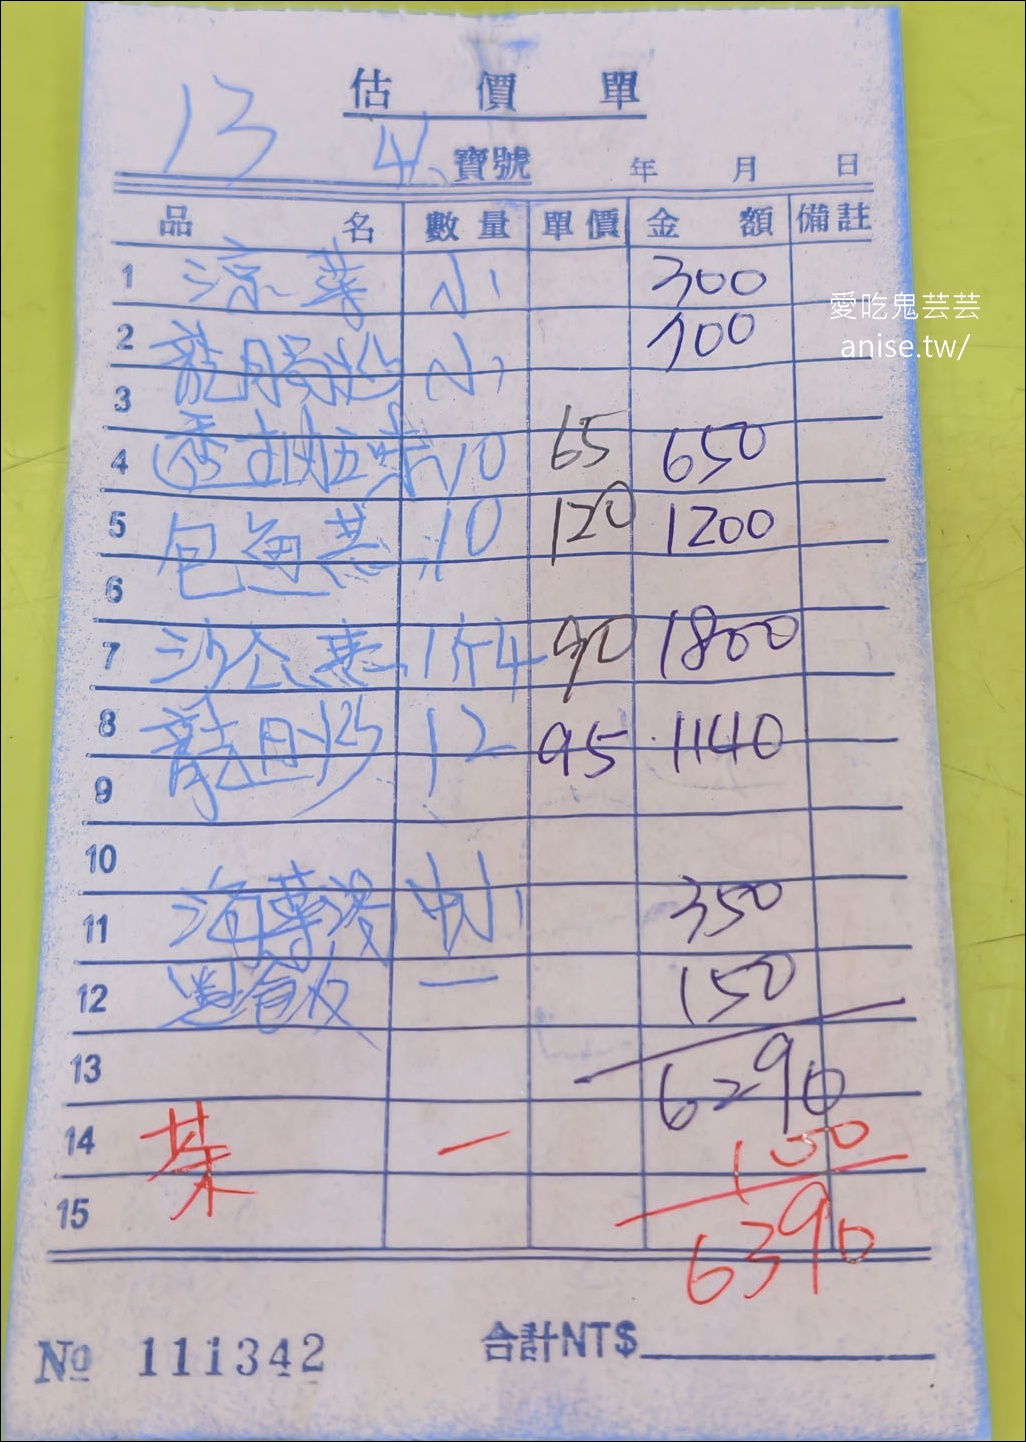 估價單
13 寶號 年 月 日
品名 數量 單價 金額 備註
1 涼菜 小 300
2 小 700
3
4 10 65 650
5 包魚蒸 10 120 1200
6
7 沙公蒸 1斤4 90 1800
8 龍 12 95 1140
9
10
11 海 湯 小 350
12 一 150
13 6290
14 菜 一 100
15 6390
合計NT$
№ 111342
愛吃鬼芸芸
anise.tw/